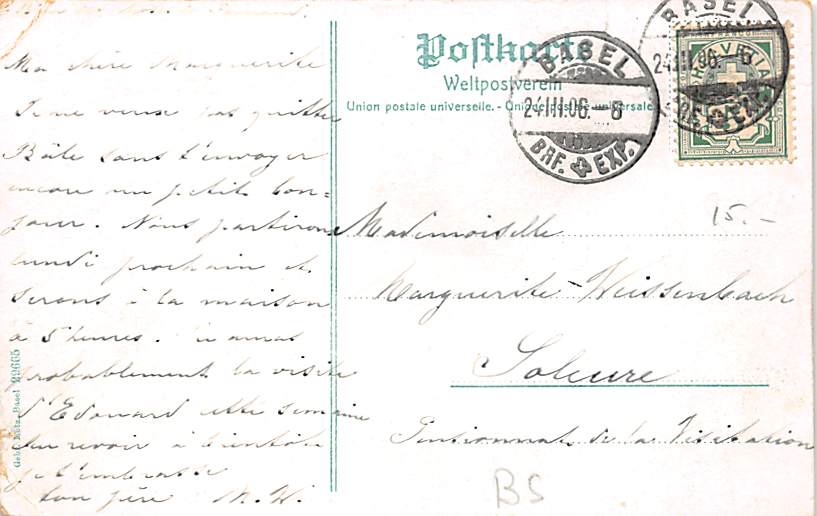 Ma chère Marguerite
Je ne veux pas quitter
Bâle sans t'envoyer
encore un petit bon=
jour. Nous partirons
lundi prochain et
serons à la maison
à 5 heures. Tu auras
probablement la visite
d'Edouard cette semaine
Au revoir à bientôt
je t'embrasse
ton père M. W.
Gebr. Metz, Basel 29665
Postkarte
Weltpostverein
Union postale universelle. - Unione postale universale.
BASEL
24.III.06.-8
BRF. EXP.
BASEL
24.III.06.-8
BRF. EXP.
HELVETIA
15.-
Mademoiselle
Marguerite Weissenbach
Soleure
Pensionnat de la Visitation
BS